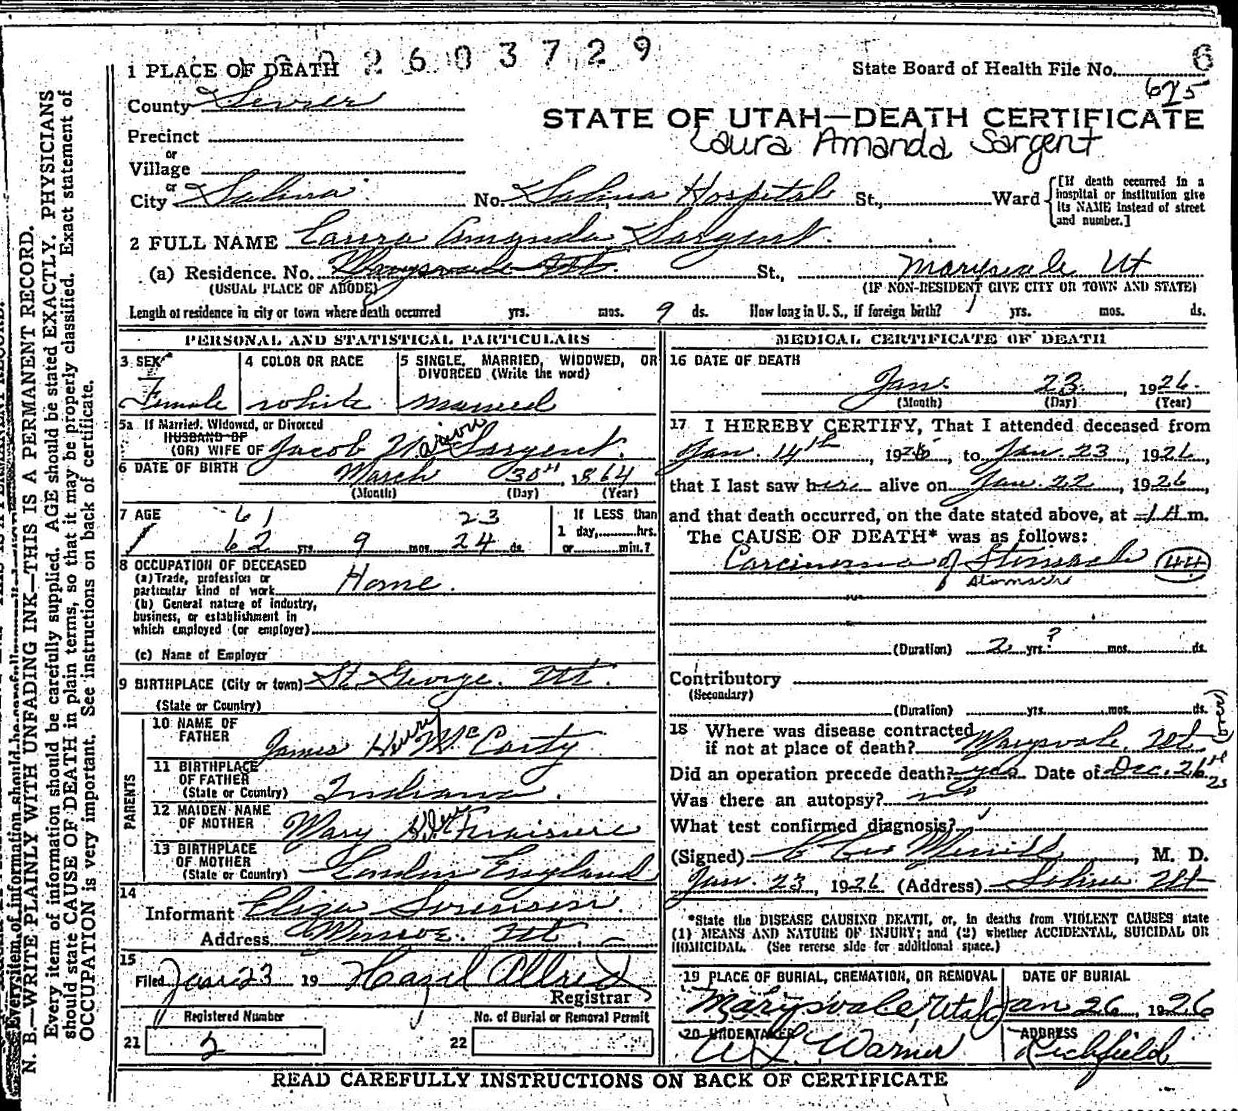 2603729
6
1 PLACE OF DEATH
State Board of Health File No.
625
County Sevier
STATE OF UTAH—DEATH CERTIFICATE
Laura Amanda Sargent
Precinct
or
Village
or
City Salina No. Salina Hospital St., Ward
[If death occurred in a hospital or institution give its NAME instead of street and number.]
2 FULL NAME Laura Amanda Sargent.
(a) Residence. No. Marysvale Ut. St., Marysvale Ut
(USUAL PLACE OF ABODE) (IF NON-RESIDENT GIVE CITY OR TOWN AND STATE)
Length of residence in city or town where death occurred yrs. mos. 9 ds. How long in U. S., if foreign birth? yrs. mos. ds.
PERSONAL AND STATISTICAL PARTICULARS
3 SEX
Female
4 COLOR OR RACE
white
5 SINGLE, MARRIED, WIDOWED, OR
DIVORCED (Write the word)
married
5a If Married, Widowed, or Divorced
HUSBAND OF
(OR) WIFE OF Jacob Marion Sargent.
6 DATE OF BIRTH March 30th, 1864
(Month) (Day) (Year)
7 AGE 61 23
62 yrs. 9 mos. 24 ds.
If LESS than
1 day, hrs.
or min.?
8 OCCUPATION OF DECEASED
(a) Trade, profession or
particular kind of work Home.
(b) General nature of industry,
business, or establishment in
which employed (or employer)
(c) Name of Employer
9 BIRTHPLACE (City or town) St. George. Ut.
(State or Country)
PARENTS
10 NAME OF
FATHER James Henry McCarty
11 BIRTHPLACE
OF FATHER
(State or Country) Indiana.
12 MAIDEN NAME
OF MOTHER Mary
13 BIRTHPLACE
OF MOTHER
(State or Country) London England
14
Informant Eliza Sorenson.
Address Monroe. Ut.
15
Filed Jan 23 19 Hazel Allred
Registrar
Registered Number
21 2
No. of Burial or Removal Permit
22
MEDICAL CERTIFICATE OF DEATH
16 DATE OF DEATH
Jan. 23, 1926.
(Month) (Day) (Year)
17 I HEREBY CERTIFY, That I attended deceased from
Jan. 14th, 1926, to Jan. 23, 1926,
that I last saw her alive on Jan. 22, 1926,
and that death occurred, on the date stated above, at 1 A m.
The CAUSE OF DEATH* was as follows:
Carcinoma of Stomach 44
Stomach
(Duration) 2 yrs.? mos. ds.
Contributory
(Secondary)
(Duration) yrs. mos. ds.
18 Where was disease contracted
if not at place of death? Marysvale. Ut (over)
Did an operation precede death? yes. Date of Dec. 26th 25
Was there an autopsy? no
What test confirmed diagnosis?
(Signed) Merrill, M. D.
Jan. 23, 1926 (Address) Salina Ut
*State the DISEASE CAUSING DEATH, or, in deaths from VIOLENT CAUSES state
(1) MEANS AND NATURE OF INJURY; and (2) whether ACCIDENTAL, SUICIDAL OR
HOMICIDAL. (See reverse side for additional space.)
19 PLACE OF BURIAL, CREMATION, OR REMOVAL
Marysvale Utah
DATE OF BURIAL
Jan 26, 1926
20 UNDERTAKER
Warner
ADDRESS
Richfield
READ CAREFULLY INSTRUCTIONS ON BACK OF CERTIFICATE
N. B.—WRITE PLAINLY WITH UNFADING INK—THIS IS A PERMANENT RECORD.
Every item of information should be carefully supplied. AGE should be stated EXACTLY. PHYSICIANS
should state CAUSE OF DEATH in plain terms, so that it may be properly classified. Exact statement of
OCCUPATION is very important. See instructions on back of certificate.